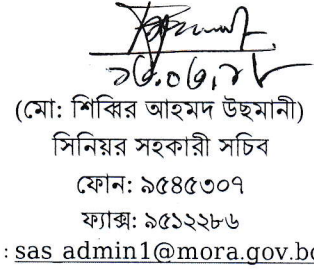 (মো: শিব্বির আহমদ উছমানী)
সিনিয়র সহকারী সচিব
ফোন: ৯৫৪৫৩০৭
ফ্যাক্স: ৯৫১২২৮৬
: sas_admin1@mora.gov.bd